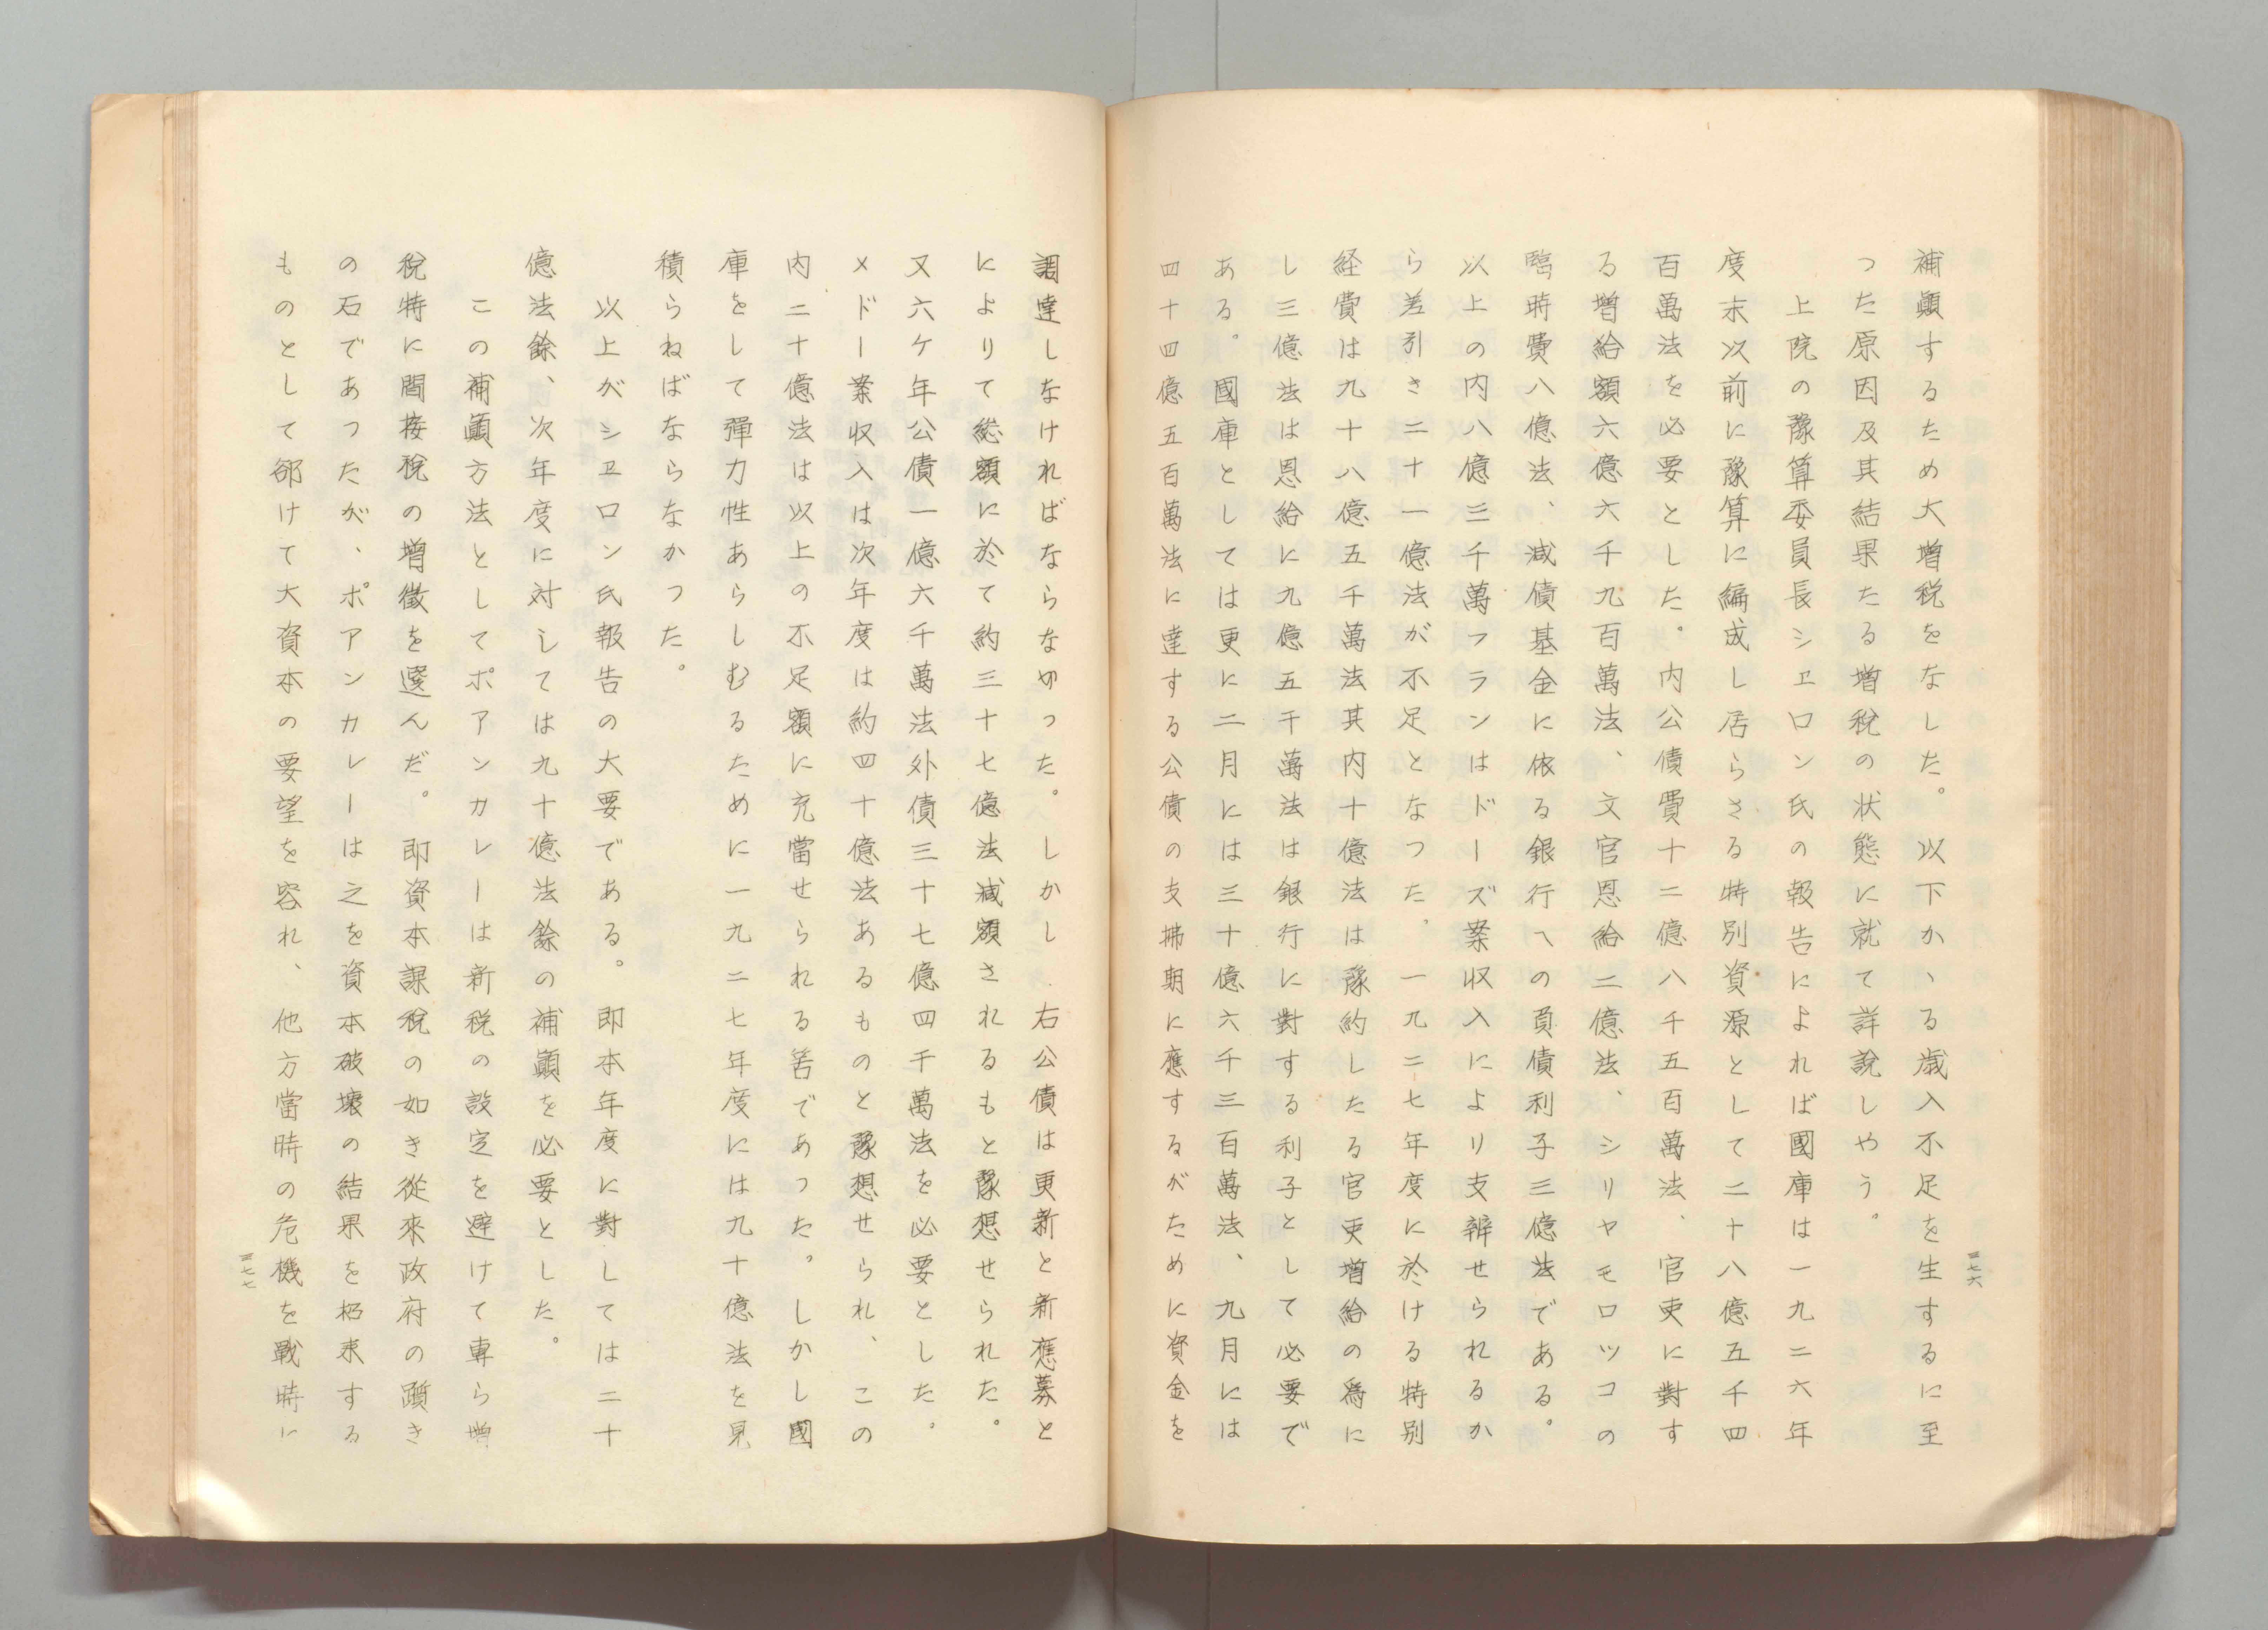 補顚するため大增税をなした。以下かゝる歳入不足を生するに至
つた原因及其結果たる增税の状態に就て詳說しやう。
上院の豫算委員長シエロン氏の報告によれば國庫は一九二六年
度末以前に豫算に編成し居らさる特別資源として二十八億五千四
百萬法を必要とした。内公債費十二億八千五百萬法、官吏に對す
る增給額六億六千九百萬法、文官恩給二億法、シリヤモロツコの
臨時費八億法、減債基金に依る銀行への負債利子三億法である。
以上の内八億三千萬フランはドーズ案収入により支辨せられるか
ら差引さ二十一億法が不足となつた。一九二七年度に於ける特別
経費は九十八億五千萬法其内十億法は豫約したる官吏增給の爲に
し三億法は恩給に九億五千萬法は銀行に對する利子として必要で
ある。國庫としては更に二月には三十億六千三百萬法、九月には
四十四億五百萬法に達する公債の支拂期に應するがために資金を
三七六
調達しなければならなかった。しかし右公債は更新と新應募と
によりて総額に於て約三十七億法減額されるもと豫想せられた。
又六ケ年公債一億六千萬法外債三十七億四千萬法を必要とした。
メドー案収入は次年度は約四十億法あるものと豫想せられ、この
内二十億法は以上の不足額に充當せられる筈であった。しかし國
庫をして彈力性あらしむるために一九二七年度には九十億法を見
積らねばならなかつた。
以上がシエロン氏報告の大要である。即本年度に對しては二十
億法餘、次年度に対しては九十億法餘の補顚を必要とした。
この補顚方法としてポアンカレーは新税の設定を避けて専ら增
税特に間接税の增徴を選んだ。即資本課税の如き從來政府の躓き
の石であつたが、ポアンカレーは之を資本破壞の結果を招来する
ものとして郤けて大資本の要望を容れ、他方當時の危機を戰時に
三七七